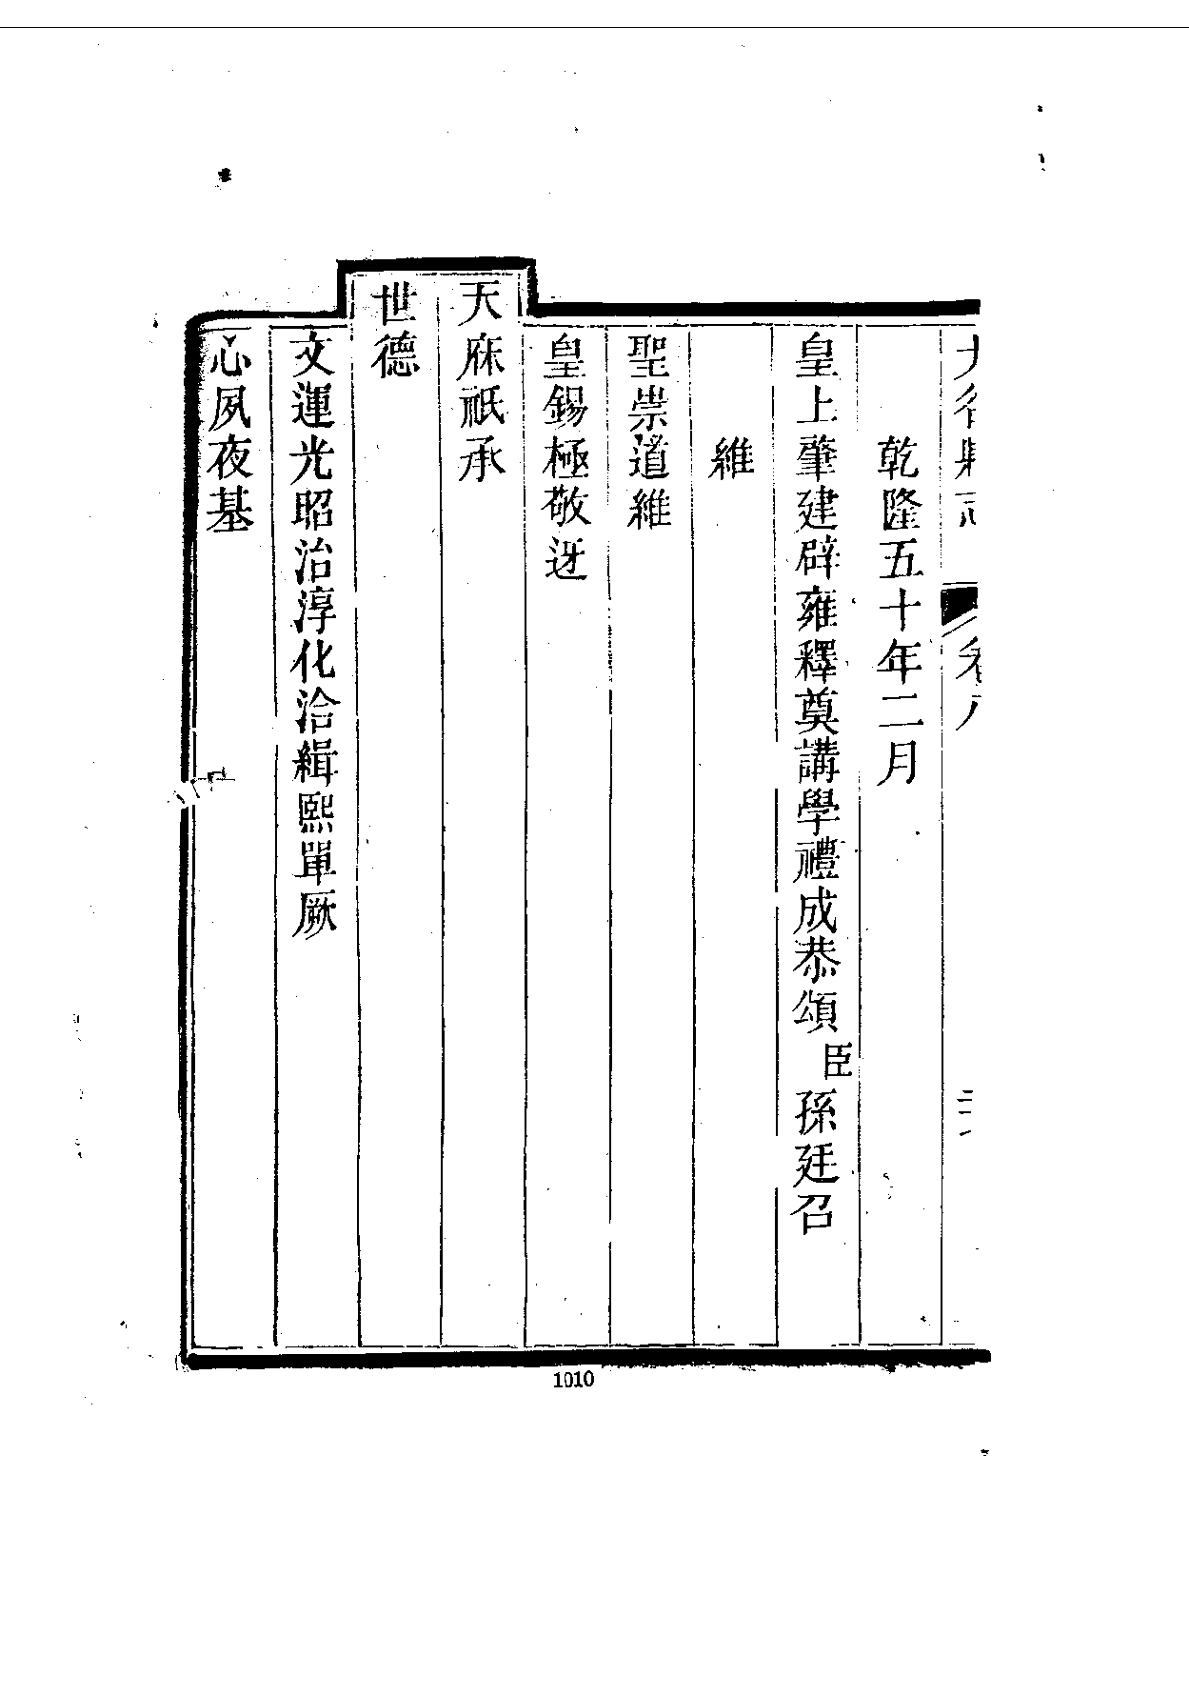 乾隆五十年二月
皇上肇建辟雍釋奠講學禮成恭頌臣孫廷召
維
聖崇道維
皇錫極敬迓
天庥祇承
世德
文運光昭治淳化洽緝熙單厥
心夙夜基
1010